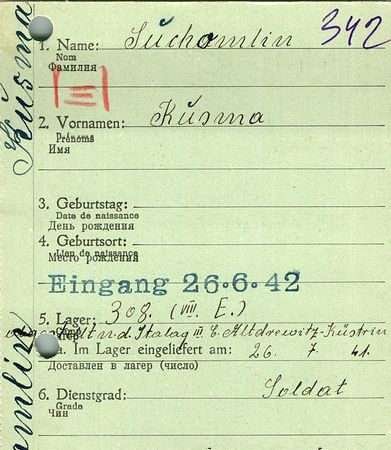 342
1. Name: Suchomlin
Nom
Фамилия
2. Vornamen: Küsma
Prénoms
Имя
3. Geburtstag:
Date de naissance
День рождения
4. Geburtsort:
Lieu de naissance
Место рождения
Eingang 26.6.42
5. Lager: 308. (VIII. E.)
n. d. Stalag III C Altdrewitz-Küstrin
a. Im Lager eingeliefert am: 26. 7. 41.
Доставлен в лагерь (число)
6. Dienstgrad: Soldat
Grade
Чин
Küsma